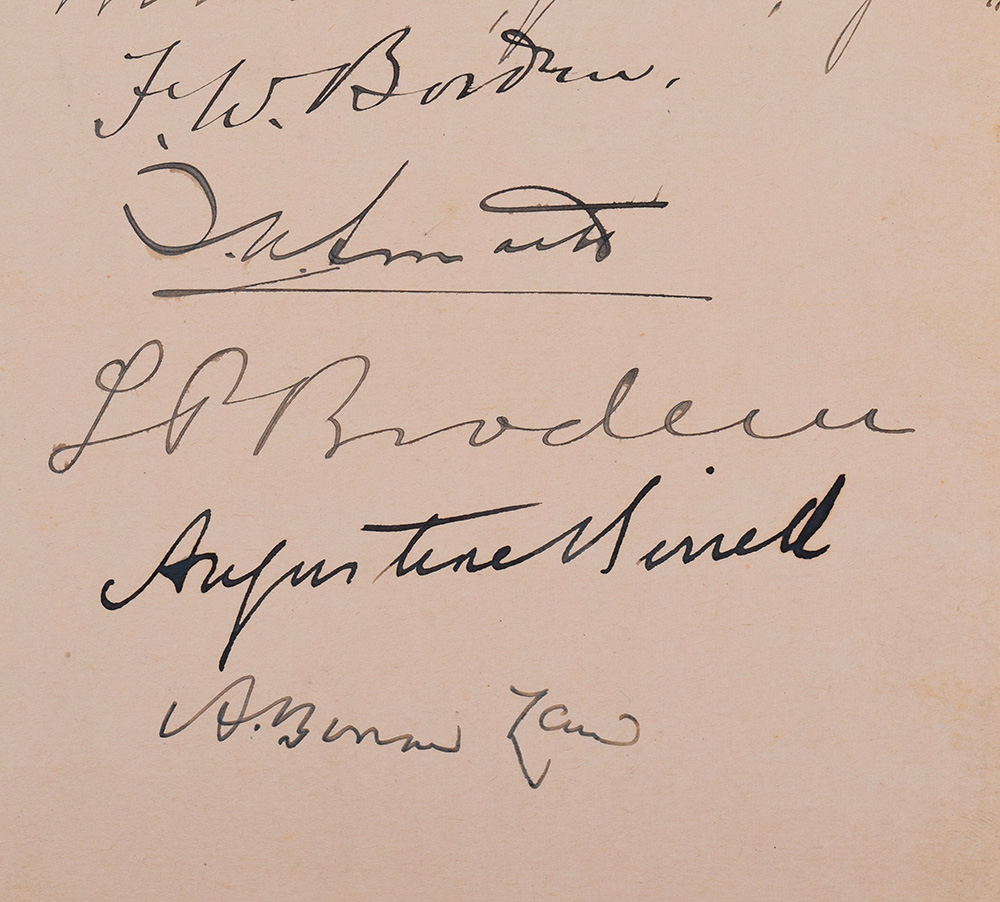 F. W. Borden.
T. W. Smartt
L P Brodeur
Augustine Birrell
A. Bonar Law